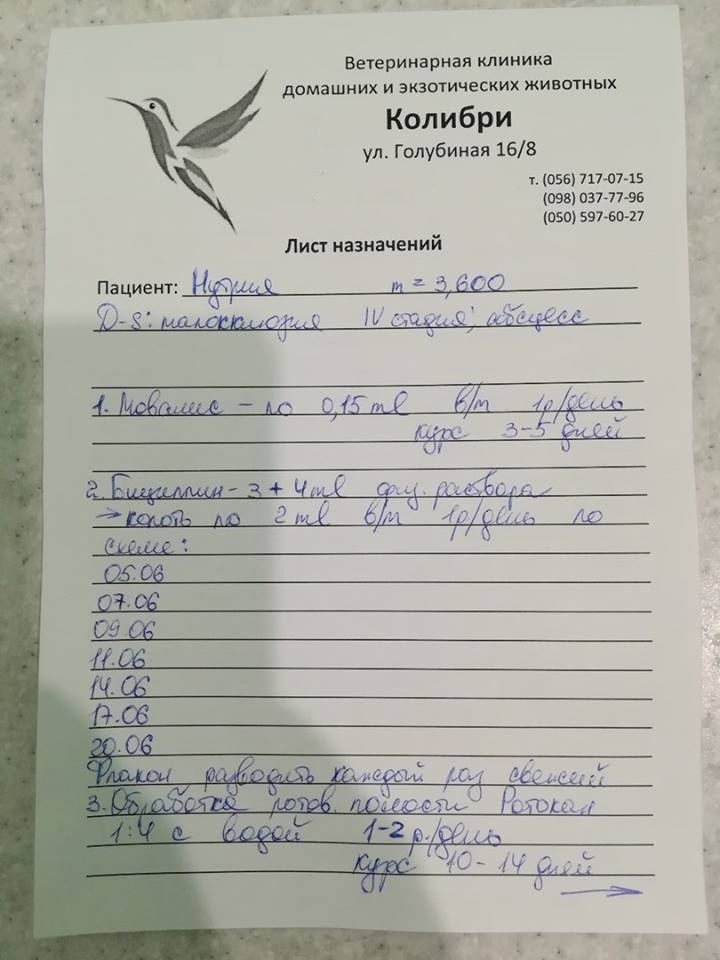 Ветеринарная клиника
домашних и экзотических животных
Колибри
ул. Голубиная 16/8
т. (056) 717-07-15
(098) 037-77-96
(050) 597-60-27
Лист назначений
Пациент: Нутрия m = 3,600
D-s: малокклюзия IV стадия; абсцесс
1. Мовалис - по 0,15 ml в/m 1р/день
курс 3-5 дней
2. Бициллин-3 + 4 ml физ. раствора
→ колоть по 2 ml в/m 1р/день по
схеме:
05.06
07.06
09.06
11.06
14.06
17.06
20.06
Флакон разводить каждый раз свежий
3. Обработка ротов. полости Ротокан
1:4 с водой 1-2 р./день
курс 10-14 дней
→